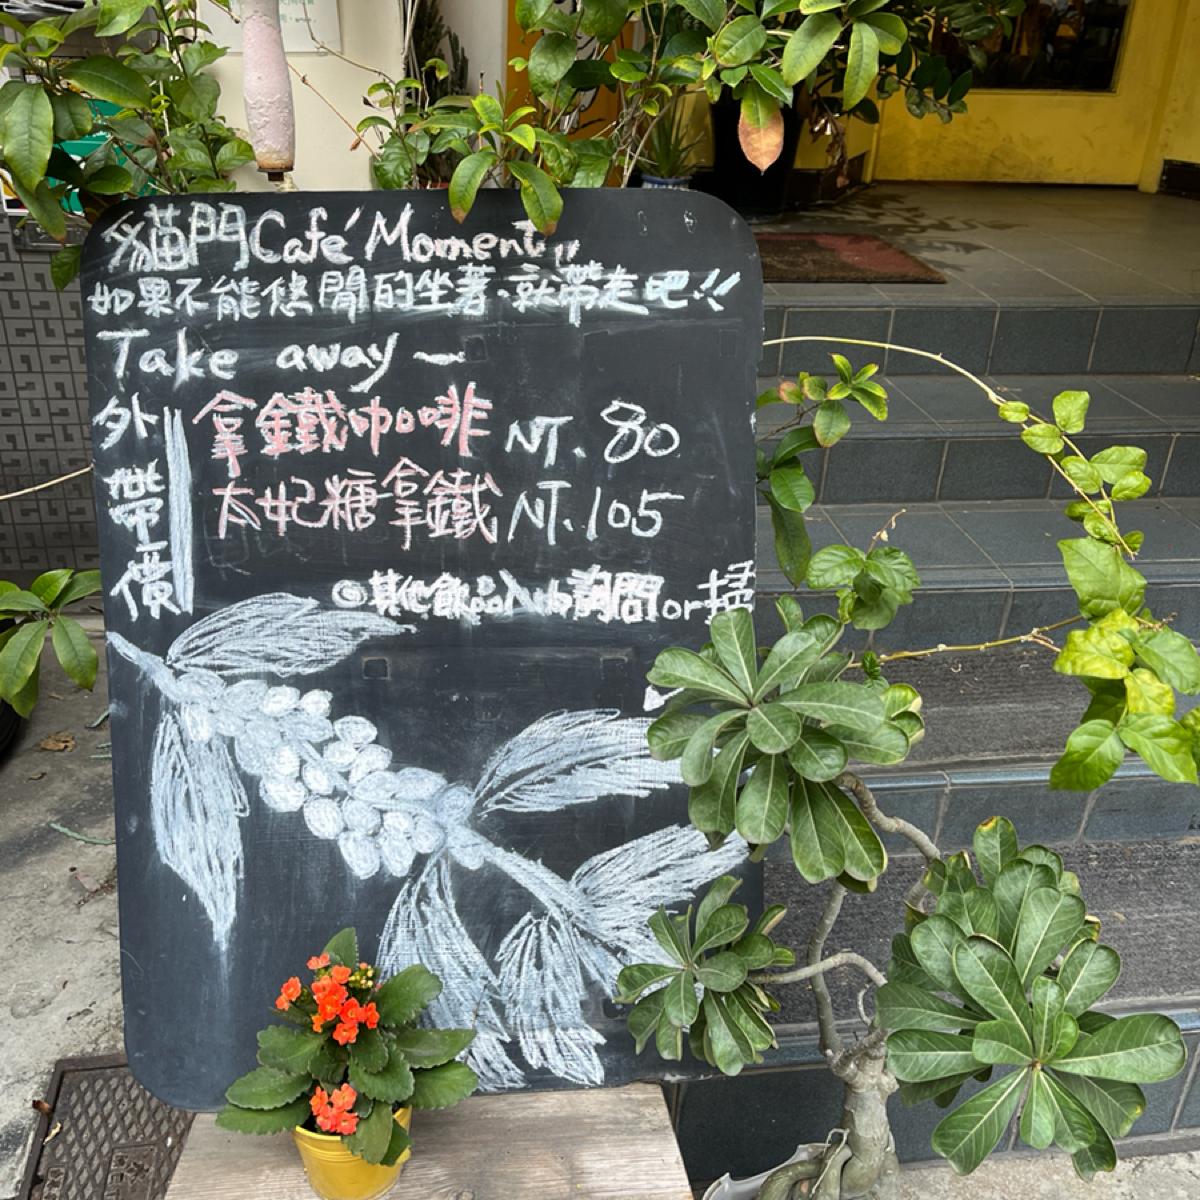 貓門Café Moment,,
如果不能悠閒的坐著.就帶走吧!!
Take away —
外帶價
拿鐵咖啡 NT. 80
太妃糖拿鐵 NT. 105
◎其他飲品入內詢問or